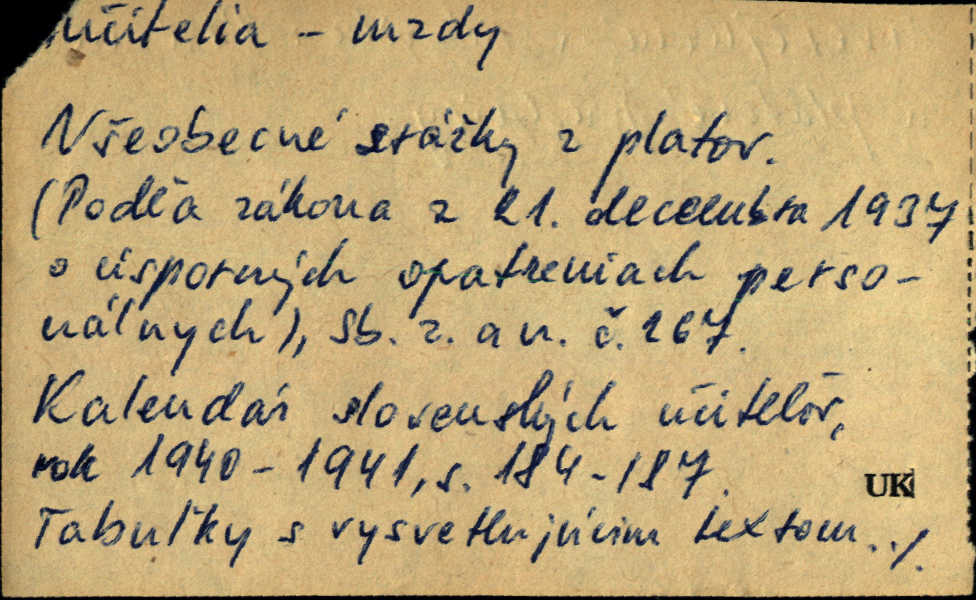 učitelia - mzdy
Všeobecné srážky z platov.
(Podľa zákona z 21. decembra 1937
o úsporných opatreniach perso-
nálnych), Sb. z. a n. č. 267.
Kalendár slovenských učiteľov,
rok 1940-1941, s. 184-187.
UK
Tabuľky s vysvetlujúcim textom. ./.